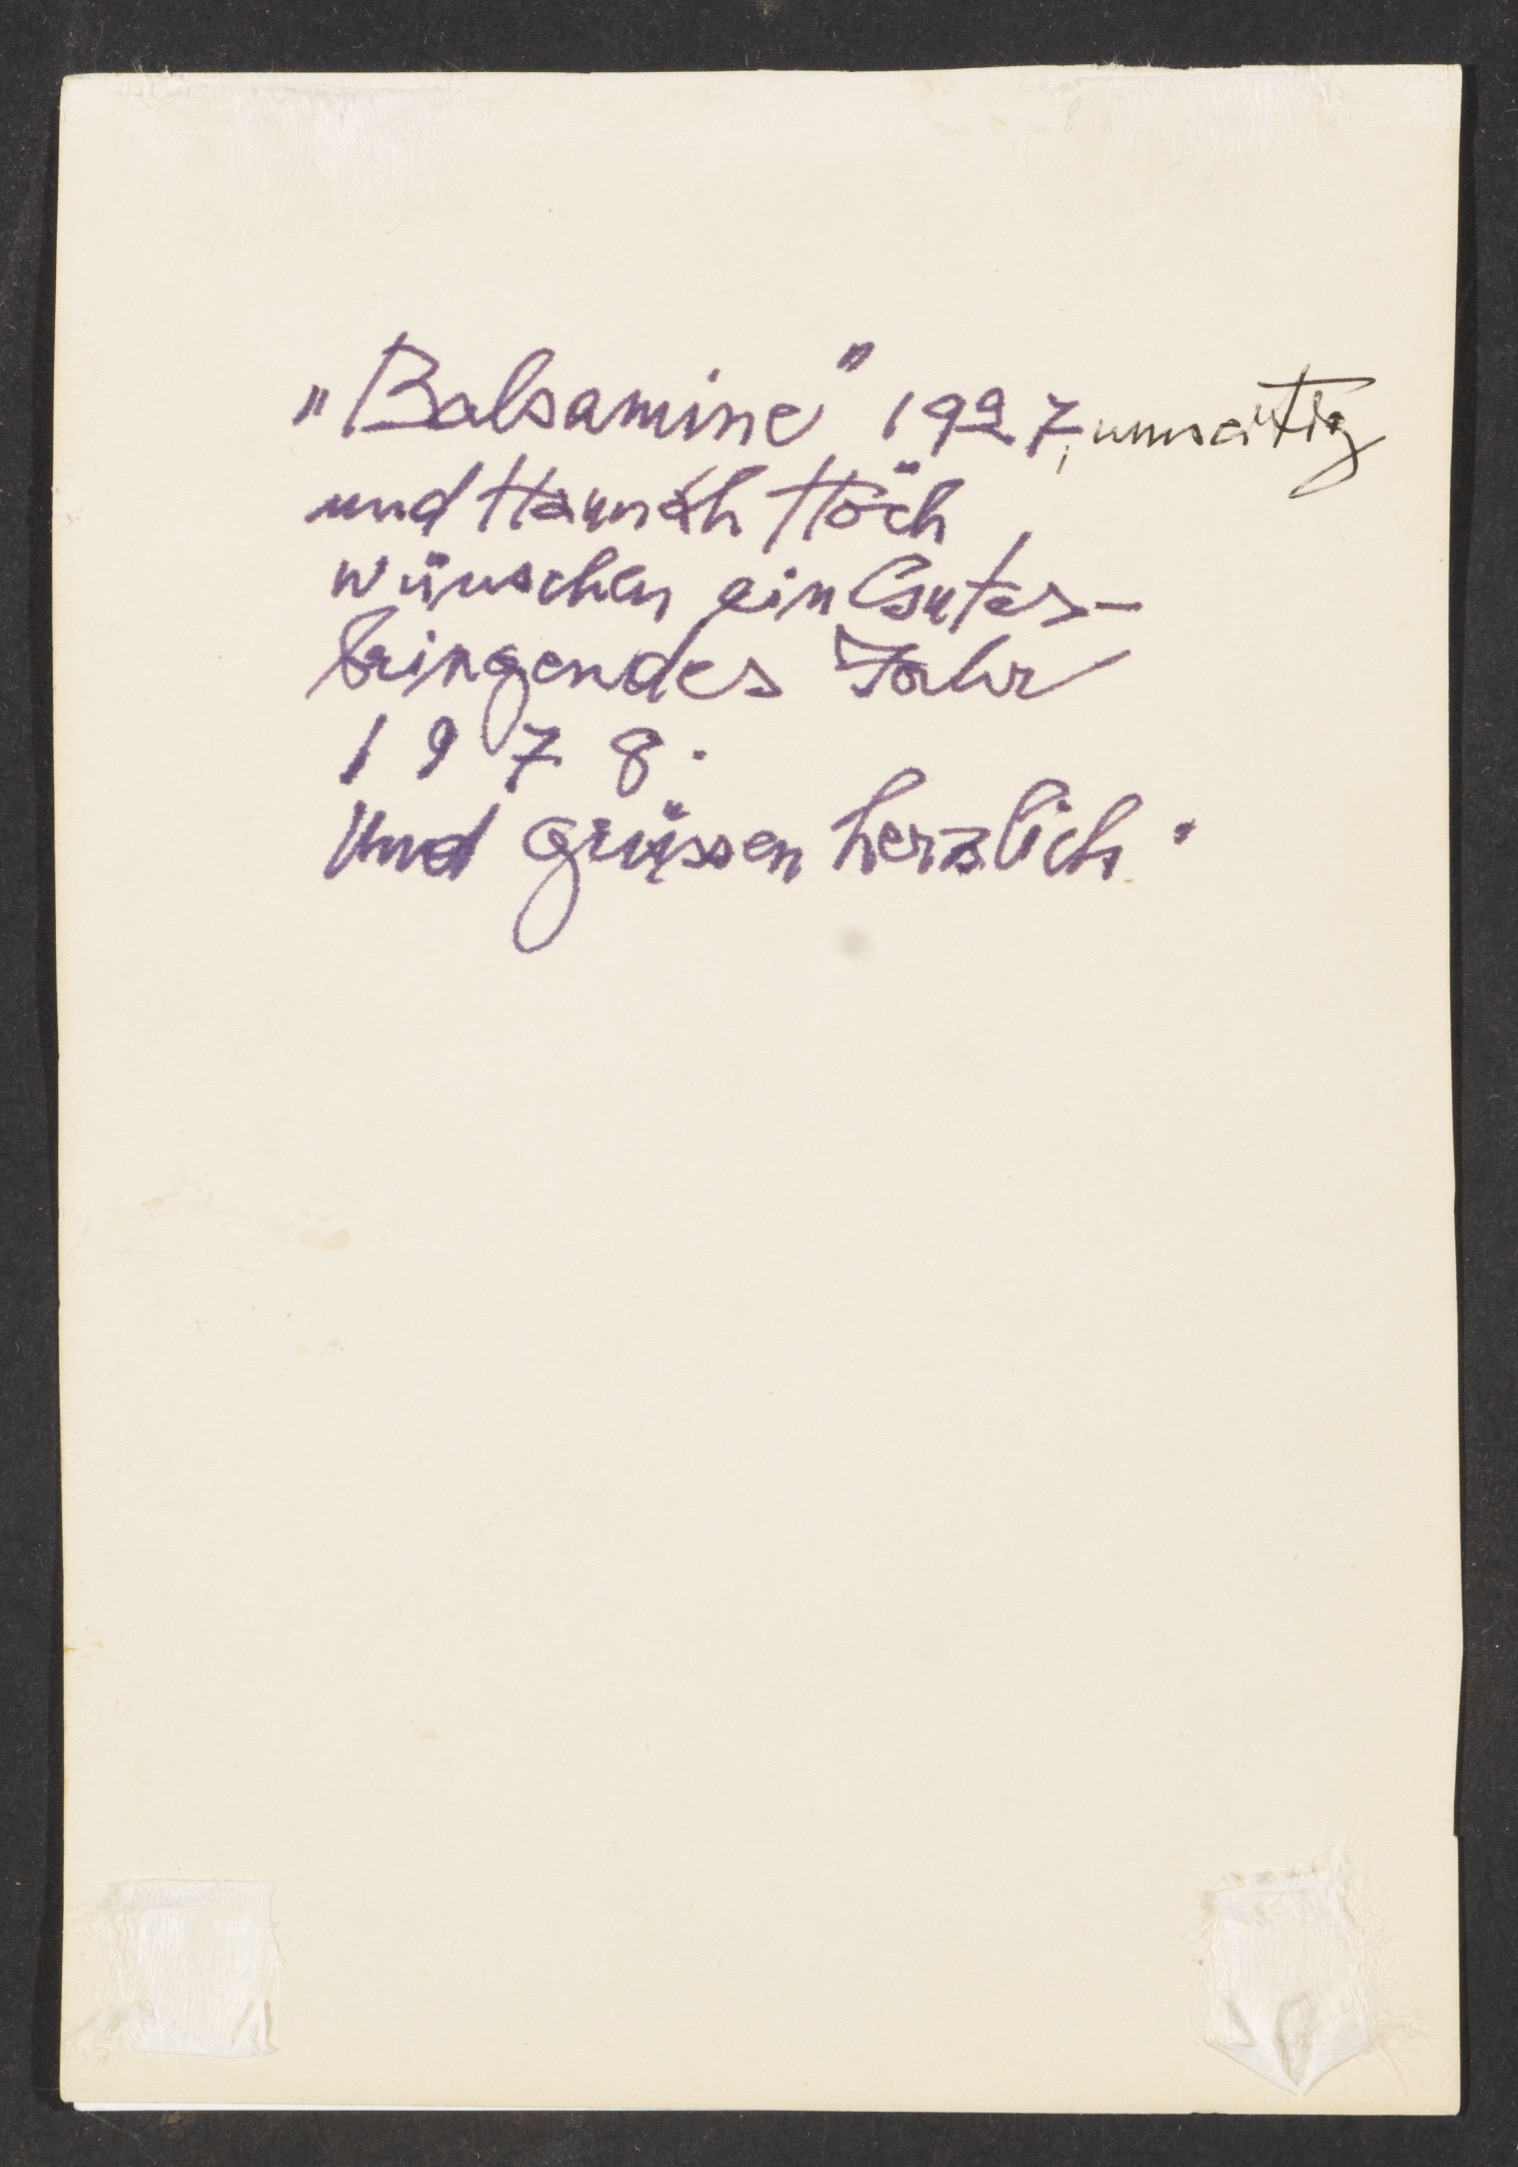 „Balsamine" 1927, umseitig
und Hannah Höch
wünschen ein Gutes-
bringendes Jahr
1978.
Und grüssen herzlich.